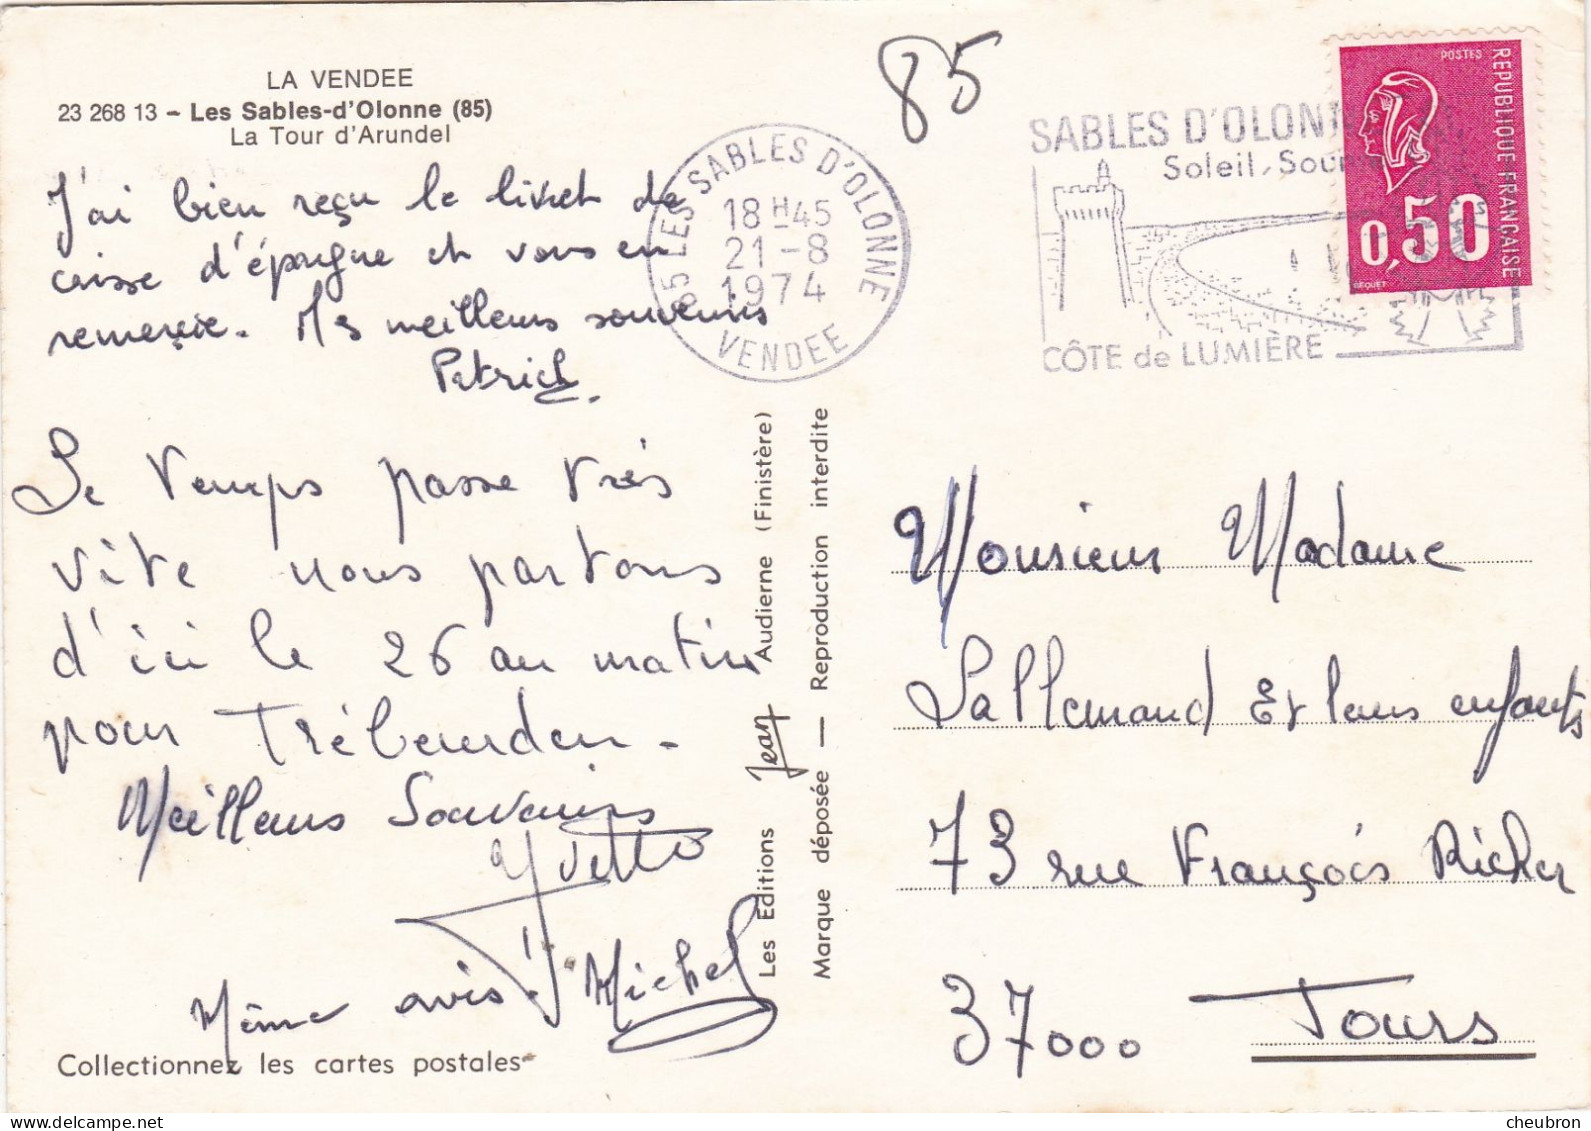 LA VENDEE
23 268 13 – Les Sables-d'Olonne (85)
La Tour d'Arundel
J'ai bien reçu le livret de
caisse d'épargne et vous en
remerçie. Mes meilleurs souvenirs
Patrick.
Le temps passe très
vite nous partons
d'ici le 26 au matin
pour Trébeurden.
Meilleurs Souvenirs
Yvette
Même avis! Michel
Collectionnez les cartes postales
85
85 LES SABLES D'OLONNE
18 H 45
21 - 8
1974
VENDEE
SABLES D'OLONN
Soleil, Sour
CÔTE de LUMIÈRE
POSTES
REPUBLIQUE FRANÇAISE
0,50
BEQUET
Les Editions Jean Audierne (Finistère)
Marque déposée — Reproduction interdite
Monsieur Madame
Lallemand Et leurs enfants
73 rue François Richer
37000 Tours
cheubron